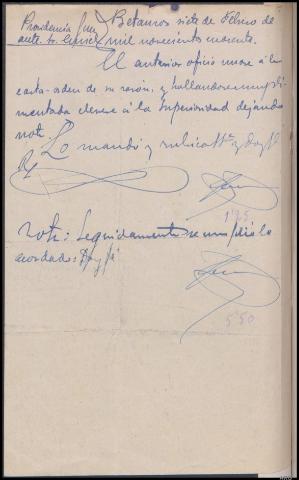 Providencia Juez Betanzos siete de Febrero de
mil novecientos cuarenta.
El anterior oficio unase á la
carta-orden de su razón, y hallandose cumpli
mentada elevese á la Superioridad dejando
nota.
Lo mandó y rubrica Sª. y doy fé
125
nota: Seguidamente se cumplió lo
acordado: Doy fé
550